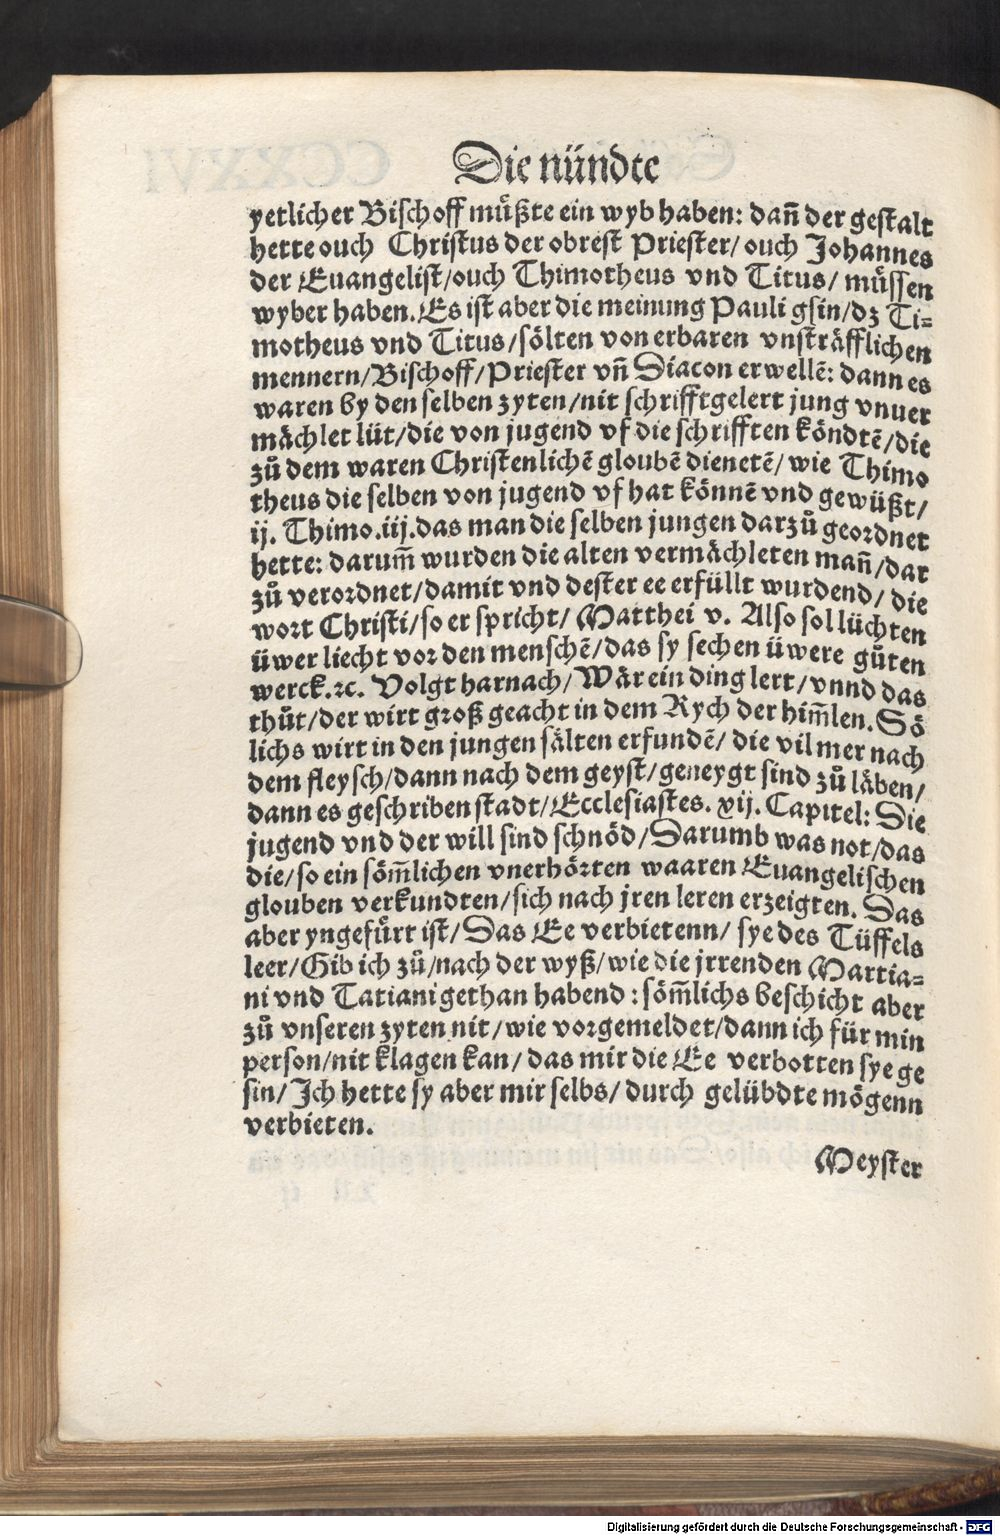 Die nündte
yetlicher Bischoff müßte ein wyb haben: dañ der gestalt
hette ouch Christus der obrest Priester/ ouch Johannes
der Euangelist/ouch Thimotheus vnd Titus/ müssen
wyber haben. Es ist aber die meinung Pauli gsin/dz Ti⸗
motheus vnd Titus/sölten von erbaren vnsträfflichen
mennern/Bischoff/Priester vñ Diacon erwellẽ: dann es
waren by den selben zyten/nit schrifftgelert jung vnuer
mächlet lüt/die von jugend vf die schrifften köndtẽ/die
zů dem waren Christenlichẽ gloubẽ dienetẽ/ wie Thimo
theus die selben von jugend vf hat könnẽ vnd gewüßt/
ij. Thimo.iij.das man die selben jungen darzů geordnet
hette: darum̃ wurden die alten vermächleten mañ/dar
zů verordnet/damit vnd dester ee erfüllt wurdend/ die
wort Christi/so er spricht/ Matthei v. Also sol lüchten
üwer liecht vor den menschẽ/das sy sechen üwere gůten
werck.ꝛc. Volgt harnach/ Wär ein ding lert/vnnd das
thůt/der wirt groß geacht in dem Rych der him̃len. Sö
lichs wirt in den jungen sälten erfundẽ/ die vil mer nach
dem fleysch/dann nach dem geyst/geneygt sind zů läben/
dann es geschriben stadt/Ecclesiastes. xij. Capitel: Die
jugend vnd der will sind schnöd/Darumb was not/das
die/so ein söm̃lichen vnerhörten waaren Euangelischen
glouben verkundten/sich nach jren leren erzeigten. Das
aber yngefürt ist/ Das Ee verbietenn/ sye des Tüffels
leer/Gib ich zů/nach der wyß/wie die jrrenden Martia⸗
ni vnd Tatiani gethan habend : söm̃lichs beschicht aber
zů vnseren zyten nit/wie vorgemeldet/dann ich für min
person/nit klagen kan/ das mir die Ee verbotten sye ge
sin/ Ich hette sy aber mir selbs/ durch gelübdte mögenn
verbieten.
Meyster
Digitalisierung gefördert durch die Deutsche Forschungsgemeinschaft - DFG